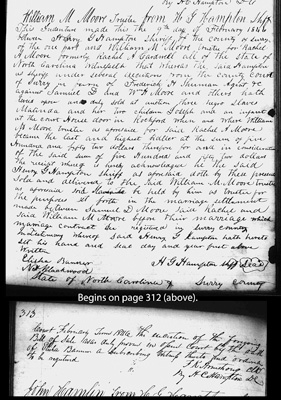 By H C Hampton D C
William M Moore Trustee from H G Hampton Shff
This Indenture made this the day of February 1846
between Henry G Hampton Sheriff of the County of Surry,
of the one part and William M Moore Trustee for Rachel
A Moore formerly Rachel A Gardwell all of the State of
North Carolina Witnesseth that whereas the said Hampton
as Sheriff under several executions from the County Court
of Surry in favor of Frederick H Shuman Agent &c
against Samuel D and W H Moore and others hath
upon and duly sold at auction three negro slaves
Malvinda and her two children Joseph and an infant
at the Court House door in Rockford when and where William
M Moore trustee as aforesaid for said Rachel A Moore
became the last and highest bidder at the sum of five
hundred and fifty two dollars therefor and in consideration
of the said sum of five hundred and fifty two dollars
the receipt whereof is hereby acknowledged he the said
Henry G Hampton Shff as aforesaid doth by these presents
Sold and delivered to the said William M Moore trustee
as aforesaid to be held by him as trustee for
the purposes set forth in the marriage settlement
made between Samuel D Moore said Rachel and
said William M Moore upon their marriage which
marriage contract is registered in Surry County
In testimony whereof said Henry G Hampton hath hereto
set his hand and seal day and year first above
written
Elisha Banner H G Hampton Shff (Seal)
N Blackwood
State of North Carolina Surry County
Begins on page 312 (above).
313
Court February Term 1846 The execution of the foregoing
Bill of Sale was duly proven in open Court by the oath
of Elisha Banner a subscribing witness thereto and ordered
to be registered F K Armstrong Clk
By H C Hampton DC
John Hamlin from H G Hampton